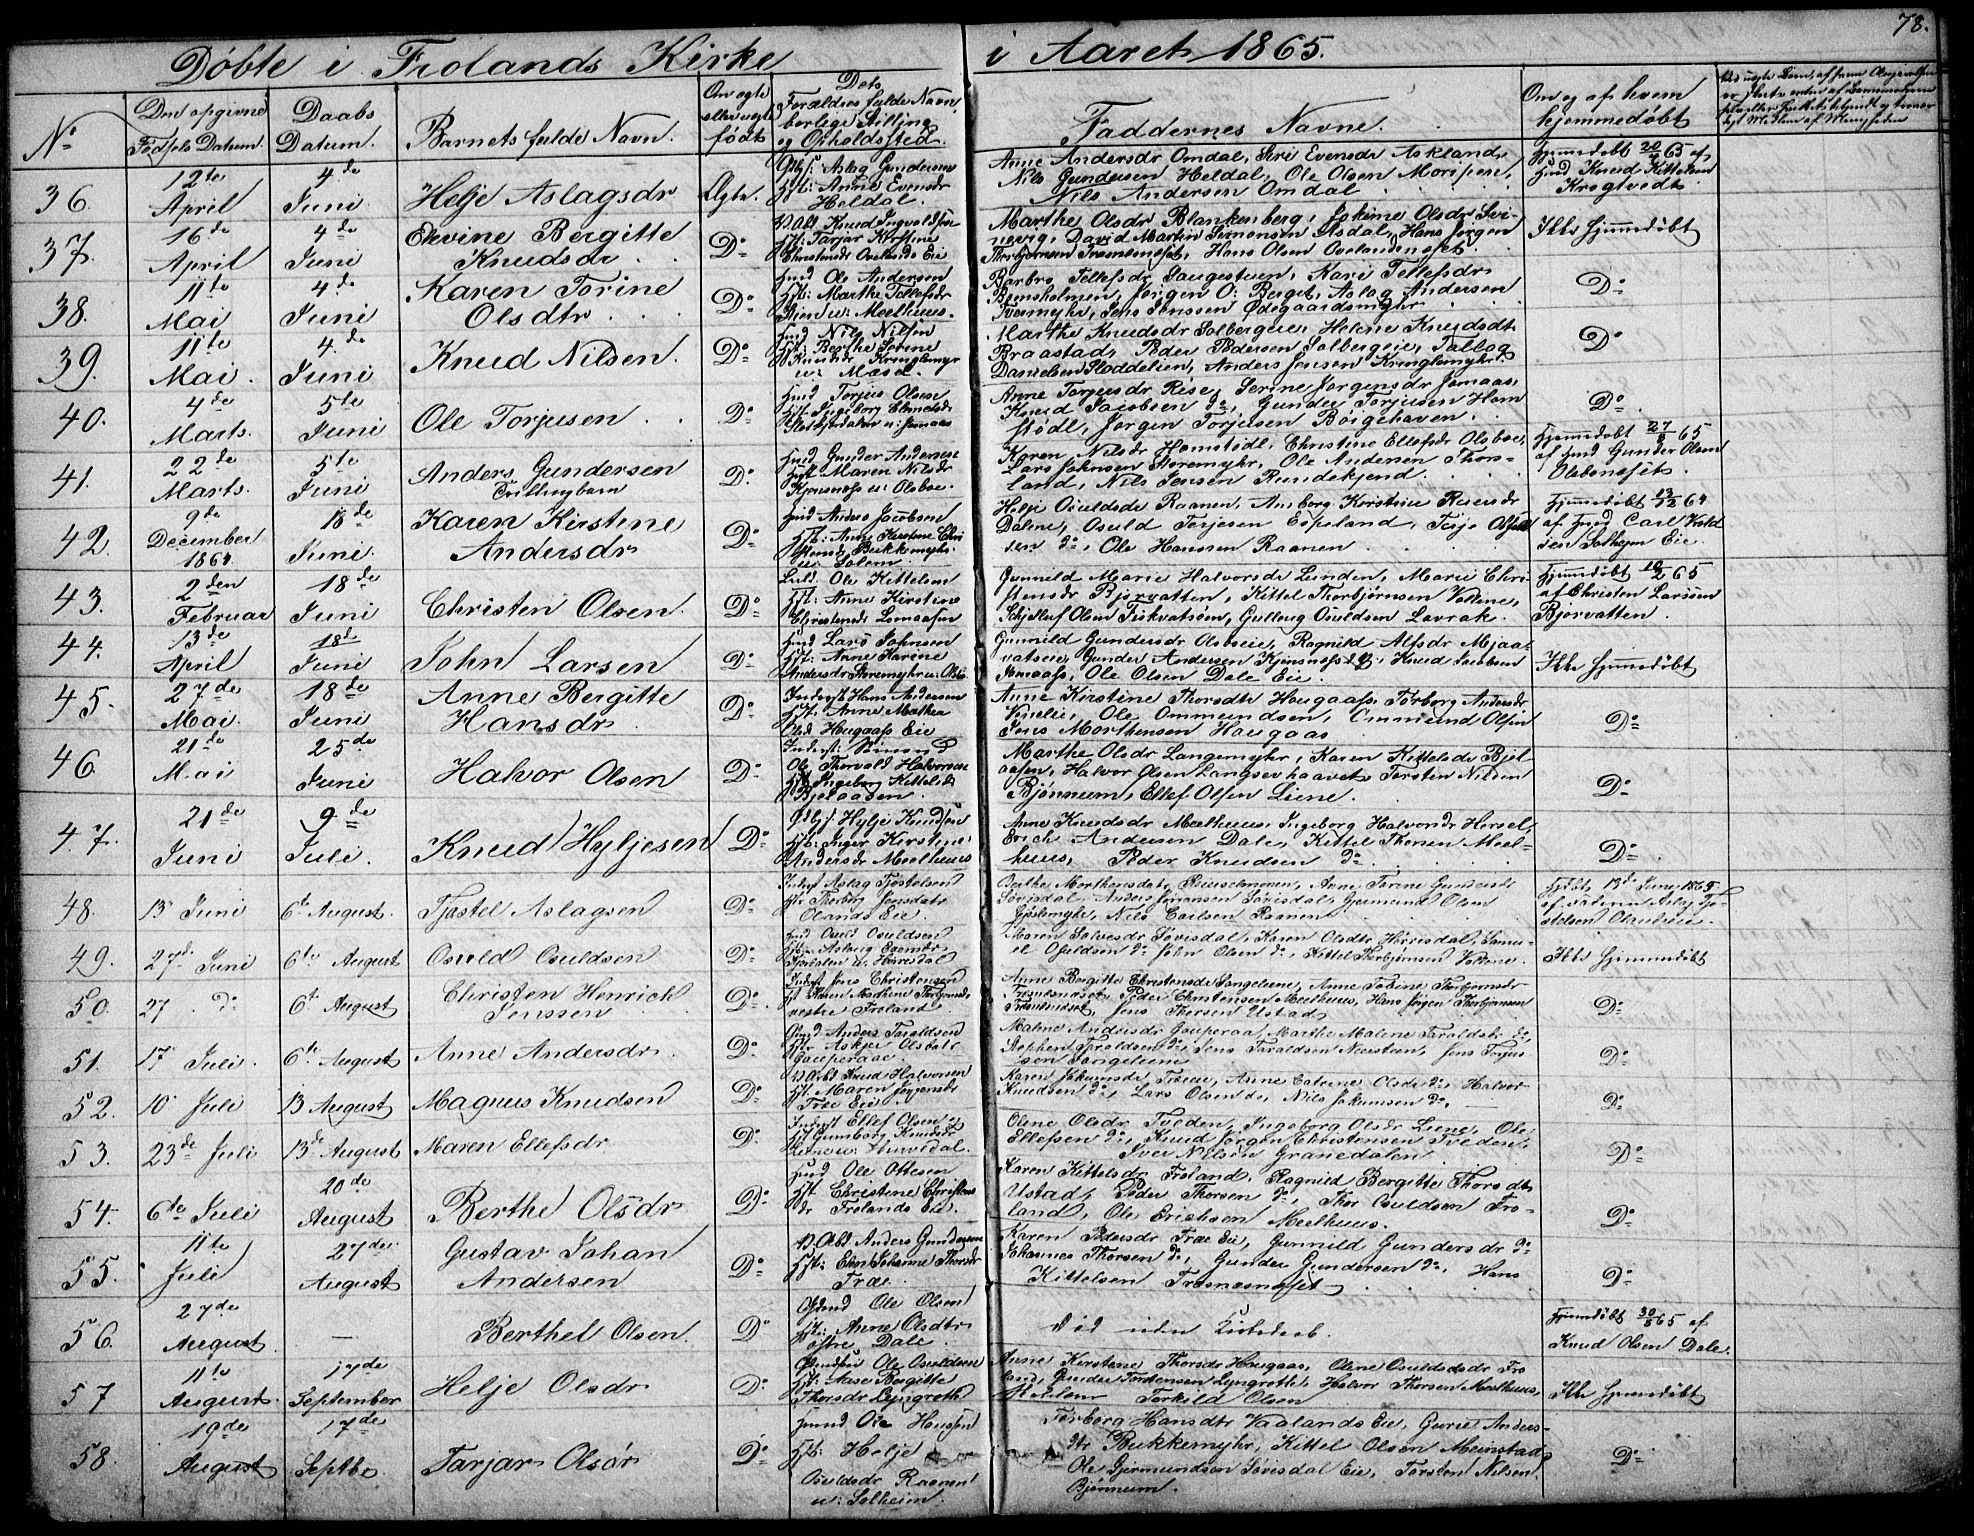 78.
Døbte i Frolands Kirke i Aaret 1865.
No
Den opgivne Fødsels Datum.
Daabs Datum.
Barnets fulde Navn.
Om ægte eller uægte født
Dets Forældres fulde Navn, borlege Stilling og Opholdssted.
Faddernes Navne.
Om og af hvem hjemmedøbt
36. 12te April
4de Juni
Helje Aslagsdr
Ægte.
Gbfs: Aslag Gundersen
Hst: Anne Evensdr
Heldal.
Anne Andersdr Omdal, Siri Evensdr Askland,
Nils Gundersen Heldal, Ole Olsen Morisen,
Nils Andersen Omdal
hjemmedøbt 20/4 65 af
Husd Knud Kittelsen
Krogtvedt
37. 16de April
4de Juni
Elevine Bergitte
Knudsdr
Do
Hst: Tarjar Kirstine
Christensdr Ovelands Eie
Marthe Olsdr Blankenberg, Jokime Olsdr Svi-
nevig, David Martin Simonsen Asdal, Hans Jørgen
Thorbjørnsen Trænesnæset, Hans Olsen Ovelandsnæset
Ikke hjemmedøbt
38. 11te Mai
4de Juni
Karen Torine
Olsdtr
Do
Husd Ole Andersen
Hst: Marthe Tellefsdr
Stene u: Mælhuus.
Barbro Tellefsdr Saugestuen, Kari Tellefsdr
Bømsholmen, Jørgen O: Berget, Aslag Andersen
Svermyhr, Jens Jenssen Ødegaardsmyhr
Do
39. 11te Mai.
4de Juni
Knud Nilsen.
Do
Husd Nils Nilsen
Hst: Berthe Serine
Knudsdr Kringlemyr
u: Mæsel.
Marthe Knudsdr Solbergeie, Helene Knudsdt
Braastad, Peder Pedersen Solbergeie, Tallag
Danielsen Sloddelien, Anders Jensen Kringlemyhr.
Do
40. 4de Marts.
5te Juni
Ole Torjusen
Do
Husd Torjus Olsen
Hst: Ingeborg Ellevsdr
Anne Torjusdr Rise, Serine Jørgensdr Jomaas,
Knud Jacobsen do, Gunder Torjusen Ham
stødl, Jørgen Torjusen Børgehaven.
Do
41. 22de Marts.
5te Juni
Anders Gundersen
Tvillingbarn
Do
Husd Gunder Andersen
Hst Maren Nilsdr
Kjønsnæs u: Olsboe.
Karen Nilsdr Hamstødl, Christine Ellefsdr Olsboe,
Lars Johnsen Storemyhr, Ole Andersen Thors-
land, Nils Jensen Rundekjend.
Hjemmedøbt 27/3 65
af Husd Gunder Olsen
Olsbonesset.
42. 9de December 1864
18de Juni.
Karen Kirstine
Andersdr
Do
Husd Anders Jacobsen
Hst: Anne Kirstine Chri
stensdr Bukkemyhr
u: Solem.
Helje Osuldsdr Raanen, Ansborg Kirstine Ravnsdr
Dalene, Osuld Terjesen Espeland, Terje
sen do, Ole Hanssen Raanen
Hjemmedøbt 13/12 64
af Husd Carl
Solhejm Eie
43. 2den Februar
18de Juni
Christen Olsen.
Do
Ole Kittelsen
Hst: Anne Kirstine
Christensdr Lomaasen
Gunnild Marie Halvorsdr Lunden, Marie Chri-
stensdr Bjorvatten, Kittel Thorbjørnsen Vattene,
Schjellef Olsen Fiskvatsøen, Gullaug Osuldsen Lavrak.
Hjemmedøbt 10/2 65
af Christen Larssen
Bjorvatten
44. 13de April
18de Juni
John Larsen
Do
Husd Lars Johnsen
Hst: Anne Karine
Andersdr Storemyhr u: Olsb
Gunnild Gundersdr Olsboeie, Ragnild Alfsdr Mjaa-
vatseie, Gunder Andersen Kjønsnæs, Knud Jacobsen
Jomaas, Ole Olsen Dale Eie.
Ikke hjemmedøbt
45. 27de Mai.
18de Juni
Anne Bergitte
Hansdr
Do
Inderst Hans Andersen
Hst: Anne Mathea
Olsd Haugaas Eie
Anne Kirstine Thorsdtr Haugaas, Torborg Andersdr
Vinelie, Ole Ommundsen, Ommund Olsen
Jens Morthensen Haugaas
Do
46. 21de Mai
25de Juni
Halvor Olsen
Do
Inderst: Simons
Ole Thorvald Halvorsen
Hst Ingeborg Kittelsdr
Bjelaasen
Marthe Olsdr Langemyhr, Karen Kittelsdr Bjel
aasen, Halvor Olsen Langsevhaavet, Torsten Nilsen
Bjønnum, Ellef Olsen Liene.
Do
47. 21de Juni
9de Juli.
Knud Hyljesen
Do
Gbfs: Hylje Knudsen
Hst: Inger Kirstine
Andersdr Mælhuus
Anne Knudsdr Mælhuus, Ingeborg Halvorsdr Hersel,
Erich Andersen Dale, Kittel Thorsen Mæl-
huus, Peder Knudsen do
Do
48. 13 Juni
6te August.
Tjøstel Aslagsen
Do
Inderst Aslag Tjøstelsen
Hst Thorborg Jensdatr
Olands Eie.
Berthe Morthensdatr, Anne Torine Gundersdr
Løvisdal, Anders Jørgensen Løvisdal, Gunmund Olsen
Gjøslemyhr, Nils Carlsen Raanen
Hjdbt 13de Juni 1865
af Faderen Aslag Tjø
stelsen Olandseie
49. 27de Juni
6te August
Osuld Osuldsen
Do
Husd Osuld Osuldsen
Hst: Aslaug Evensdr
Maren Salvesdr Løvisdal, Karen Olsdtr Hørrisdal, Samu-
el Osuldsen do John Olsen do, Kittel Thorbjørnsen Vattene.
Ikke hjemmedøbt
50. 27 do
6te August
Christen Henrich
Jenssen
Do
Inderst Jens Christensen
Hst Karen Mathine Thorbjørnsdr
vestre Froland
Anne Bergitte Christensdr Langeliene, Anne Tobine Thorbjørnsdr
Trænesnæset, Peder Christensen Mælhuus, Hans Jørgen Thorbjørnsen
Trænesnæset, Jens Thorsen Ustad
Do
51. 17 Juli.
6te August
Anne Andersdr
Do
Husd Anders Taraldsen
Hst Askjer Olsdatr
Gauperaae
Malene Andersdr Gauperaa, Marthe Malene Taraldsdr do,
Stephen Taraldsen do, Jens Taraldsen Neersteen, Jens Torjus
sen Langeliene
Do
52. 10 Juli
13 August
Magnus Knudsen
Do
Arbd Knud Halvorsen
Hst. Maren Jørgensdr
Træ Eie
Karen Jokumsdr Træeie, Anne Catrine Olsdr do, Halvor
Knudsen do, Lars Olsen do, Nils Jokumsen do,
Do
53. 23de Juli
13de August
Maren Ellefsdr
Do
Inderst Ellef Olsen
Hst Gunborg Knudsdr
Oline Olsdr Tveden, Ingeborg Olsdr Liene, Ole
Ellefsen do, Knud Jørgen Christensen Tveden,
Iver Nilsen Granedalen
Do
54. 6te Juli
20de August
Berthe Olsdr
Do
Husd Ole Ottesen
Hst Christene Christens
dr Frolands Eie.
Karen Kittelsdr Froland, Ragnild Bergitte Thorsdt
Ustad, Peder Thorsen do, Thor Osuldsen Fro-
land, Ole Erichsen Mælhuus.
Do
55. 11te Juli
27de August
Gustav Johan
Andersen
Do
Arbd Anders Gundersen
Hst: Elen Johanne Thorsdr
Træ.
Karen Pedersdr Træ Eie, Gunnild Gundersdr do
Johannes Thorsen do, Gunder Gundersen do, Hans
Kittelsen Trænesnæset
Do
56. 27de August
—
Berthel Olsen.
Do
Gbmd Ole Olsen
Hst: Anne Olsdtr
østre Dale
død uden Kirkedaab.
Hjemmedøbt 30/8 65 af
Knud Olsen Dale.
57 11te August
17de September
Helje Olsdr
Do
Ole Osuldsen
Hst: Aase Bergitte
Thorsdr Lyngroth
Anne Kirstene Thorsdr Haugaas, Oline Osuldsdr Fro
land, Gunder Torstensen Lyngroth, Halvor Thorsen Mælhuus,
Torkild Olsen
Ikke hjemmedøbt
58. 19de August
17de Septbr
Tarjar Olsdr
Do
Husd Ole Hansen
Hst: Helje
Osuldsdr Raanen
u: Solheim.
Torborg Hansdtr Vaalands Eie, Gurie Anders-
dtr Bukkemyhr, Kittel Olsen Mernstad
Ole Gjermundsen Løvisdal Eie, Torsten Nilsen
Bjønnum.
Do